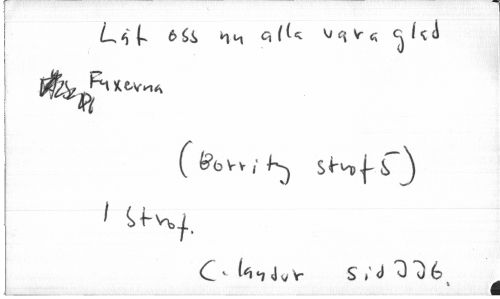 Låt oss nu alla vara glad
Fuxerna
(Borrity strof 5)
1 Strof.
C. sid 226.